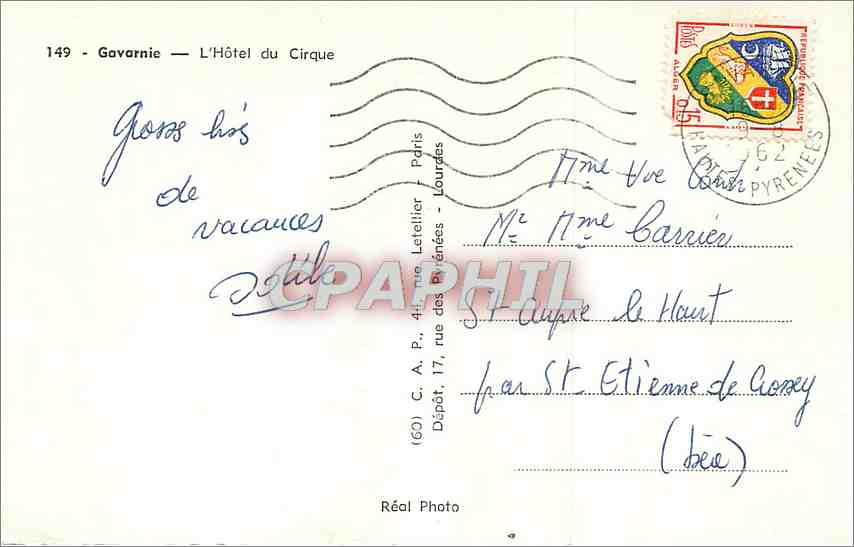 149 - Gavarnie — L'Hôtel du Cirque
Gross bises
de
vacances
Odile
(60) C. A. P., 44, rue Letellier - Paris
Dépôt, 17, rue des Pyrénées - Lourdes
REPUBLIQUE FRANÇAISE
POSTES
ALGER
0,15
1962
HAUTES PYRENEES
Mme Vve
Mr Mme Carrier
St Aupre le Haut
par St Etienne de Crossey
(Isère)
CPAPHIL
Réal Photo